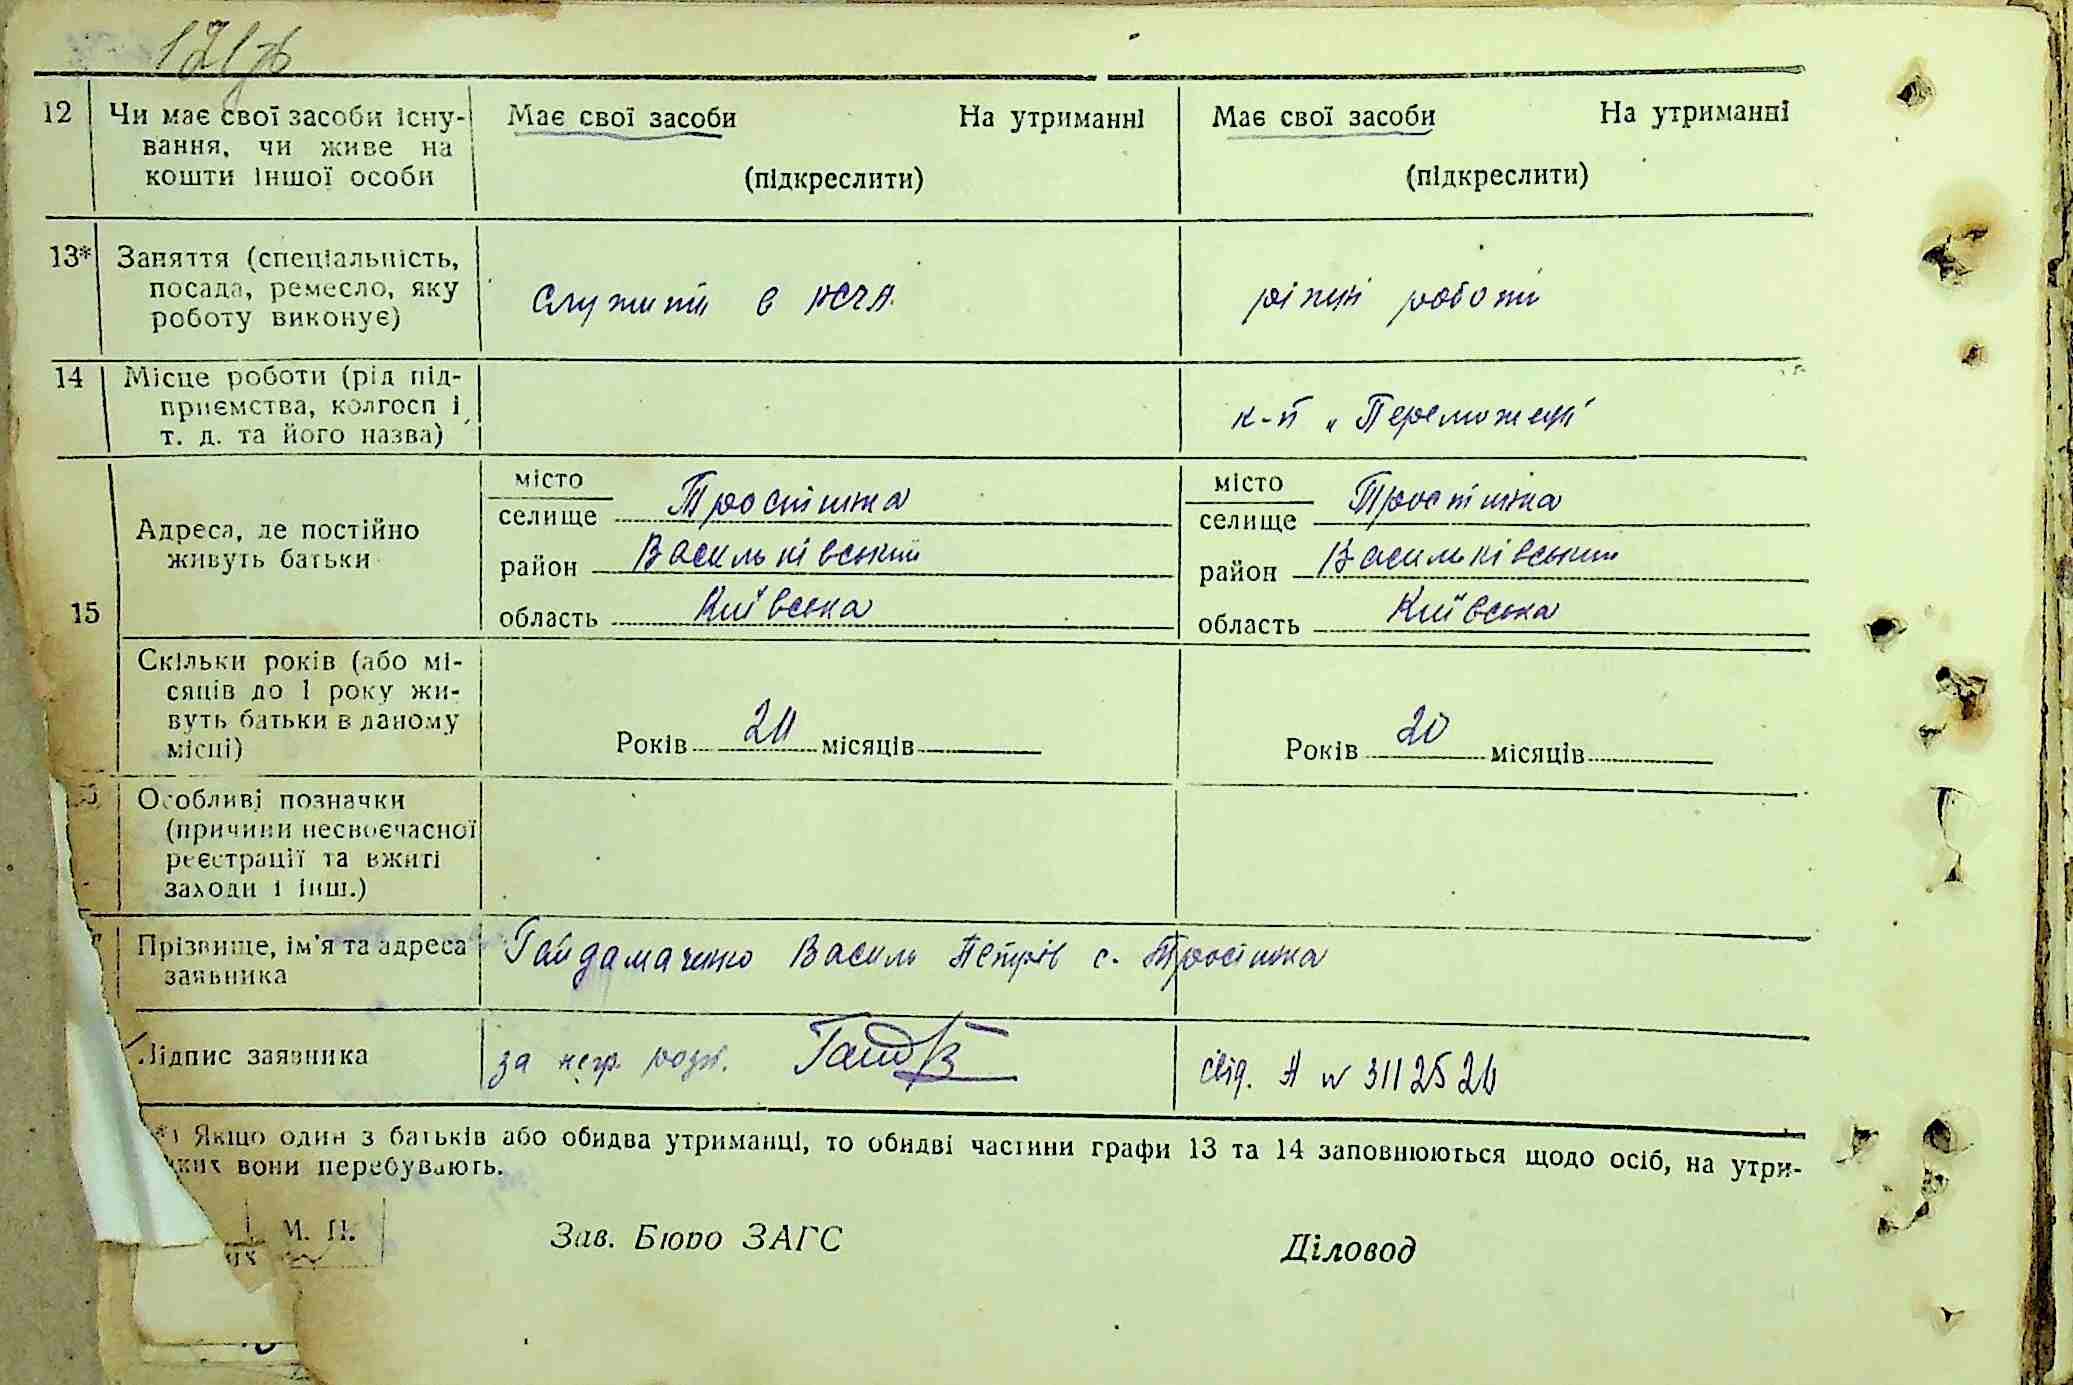 121зв
12 Чи має свої засоби існу- Має свої засоби На утриманні Має свої засоби На утриманні
вання, чи живе на
кошти іншої особи (підкреслити) (підкреслити)
13* Заняття (спеціальність,
посада, ремесло, яку служить в РСЧА різні роботи
роботу виконує)
14 Місце роботи (рід під-
приємства, колгосп і к-п „Переможець"
т. д. та його назва)
місто Тростинка місто Тростинка
селище селище
Адреса, де постійно
живуть батьки район Васильківський район Васильківський
15 область Київська область Київська
Скільки років (або мі-
сяців до 1 року жи-
вуть батьки в даному
місці) Років 21 місяців Років 20 місяців
Особливі позначки
(причини несвоєчасної
реєстрації та вжиті
заходи і інш.)
Прізвище, ім'я та адреса Гайдамаченко Василь Петрів с. Тростинка
заявника
Підпис заявника за негр. розп. ГайдВ свід. А № 3112521
*) Якщо один з батьків або обидва утриманці, то обидві частини графи 13 та 14 заповнюються щодо осіб, на утри-
яких вони перебувають.
М. П. Зав. Бюро ЗАГС Діловод